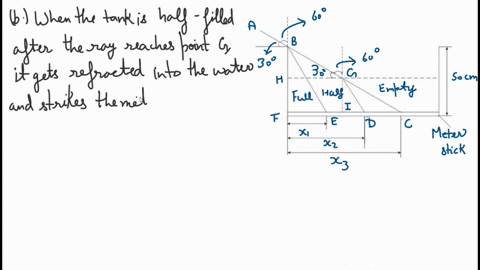 (b.) When the tank is half-filled
after the ray reaches point G,
it gets refracted into the water
and strikes the met
A
60°
B
30°
60°
30°
G
H
Full
Half
Empty
50cm
I
F
E
D
C
x1
x2
x3
Meter
stick